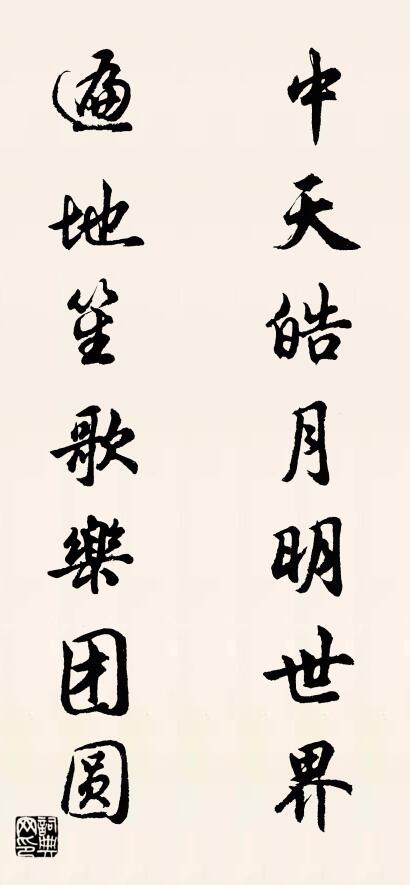 中天皓月明世界
遍地笙歌樂团圆
詞典网印